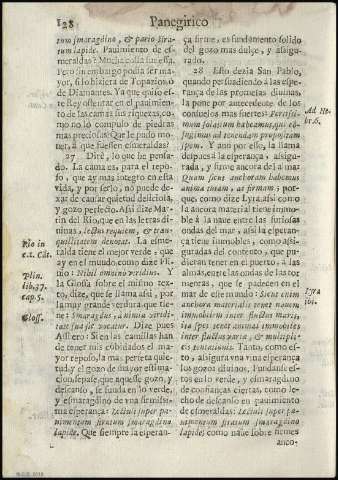 128 Panegirico
tum smaragdino, & pario stratum lapide. Pauimiento de esmeraldas? Mucha costa fuè essa.
Pero sin embargo podia ser mayor, si lo hiziera de Topazios, ò
de Diamantes. Ya que quiso este Rey ostentar en el pauimiento
de las camas sus riquezas, como no lo compuso de piedras
mas preciosas? Que le pudo mouer, à que fuessen esmeraldas?
27 Dirè, lo que he pensado. La cama es, para el reposo,
que ay mas integro en esta vida, y por serlo, no puede dexar
de causar quietud deliciosa, y gozo perfecto. Assi dize Martin
del Rio, que en las letras diuinas, lectus requiem, & tranquillitatem
denotat. La esmeralda tiene el mejor verde, que
ay en el mundo, como dize Plinio: Nihil omnino viridius. Y
la Glossa sobre el mismo texto, dize, que se llama assi, por
la muy grande verdura, que tiene: Smaragdus, à nimia viriditate
sua sic vocatur. Dize pues Assuero: Si en las camillas han
de tener mis combidados el mayor reposo, la mas perfeta quietud,
y el gozo de mayor estimacion, sepase, que aquesse gozo, y
descanso, se funda en lo verde, y esmaragdino de vna firmissima
esperança: Lectuli super pauimentum stratum smaragdino
lapide. Que siempre la esperança
firme, es fundamento solido
del gozo mas dulçe, y assegurado.
28 Esto dezia San Pablo,
quando persuadiendo à la esperança
de las promesas diuinas,
la pone por antecedente de los
consuelos mas fuertes: Fortissimum
solatium habeamus, qui confugimus
ad tenendam propositam
spem. Y ann por ello, la llama
despues à la esperança, assegurada,
y firme ancora del alma:
Quam sicut anchoram habemus
anima tutam, ac firmam; porque,
como dize Lyra, assi como
la ancora material tiene immoble
à la naue entre las furiosas
ondas del mar, assi la esperança
tiene immobles, como assiguradas
del contento, que pudieran
tener en el puerto; à las
almas, entre las ondas de las tormentas,
que se padecen en el
mar de este mundo: Sicut enim
anchora materialis tenet nauem
immobilem inter fluctus maris,
ita spes tenet animas immobiles
inter fluctus varia, & multiplicis
tentationis. Tanto, como esto,
assigura vna viua esperança
los gozos diuinos. Fundarse estos
en lo verde, y esmaragdino
de confianças ciertas, como lecho
de descanso en pauimiento
de esmeraldas: Lectuli super pauimentum
stratum smaragdino
lapide: como naue sobre firmes
anco-
Rio in
c.1. Cãt.
Plin.
lib.37.
cap.5.
Gloss.
Ad Hebr.6.
Lyra
ibi.